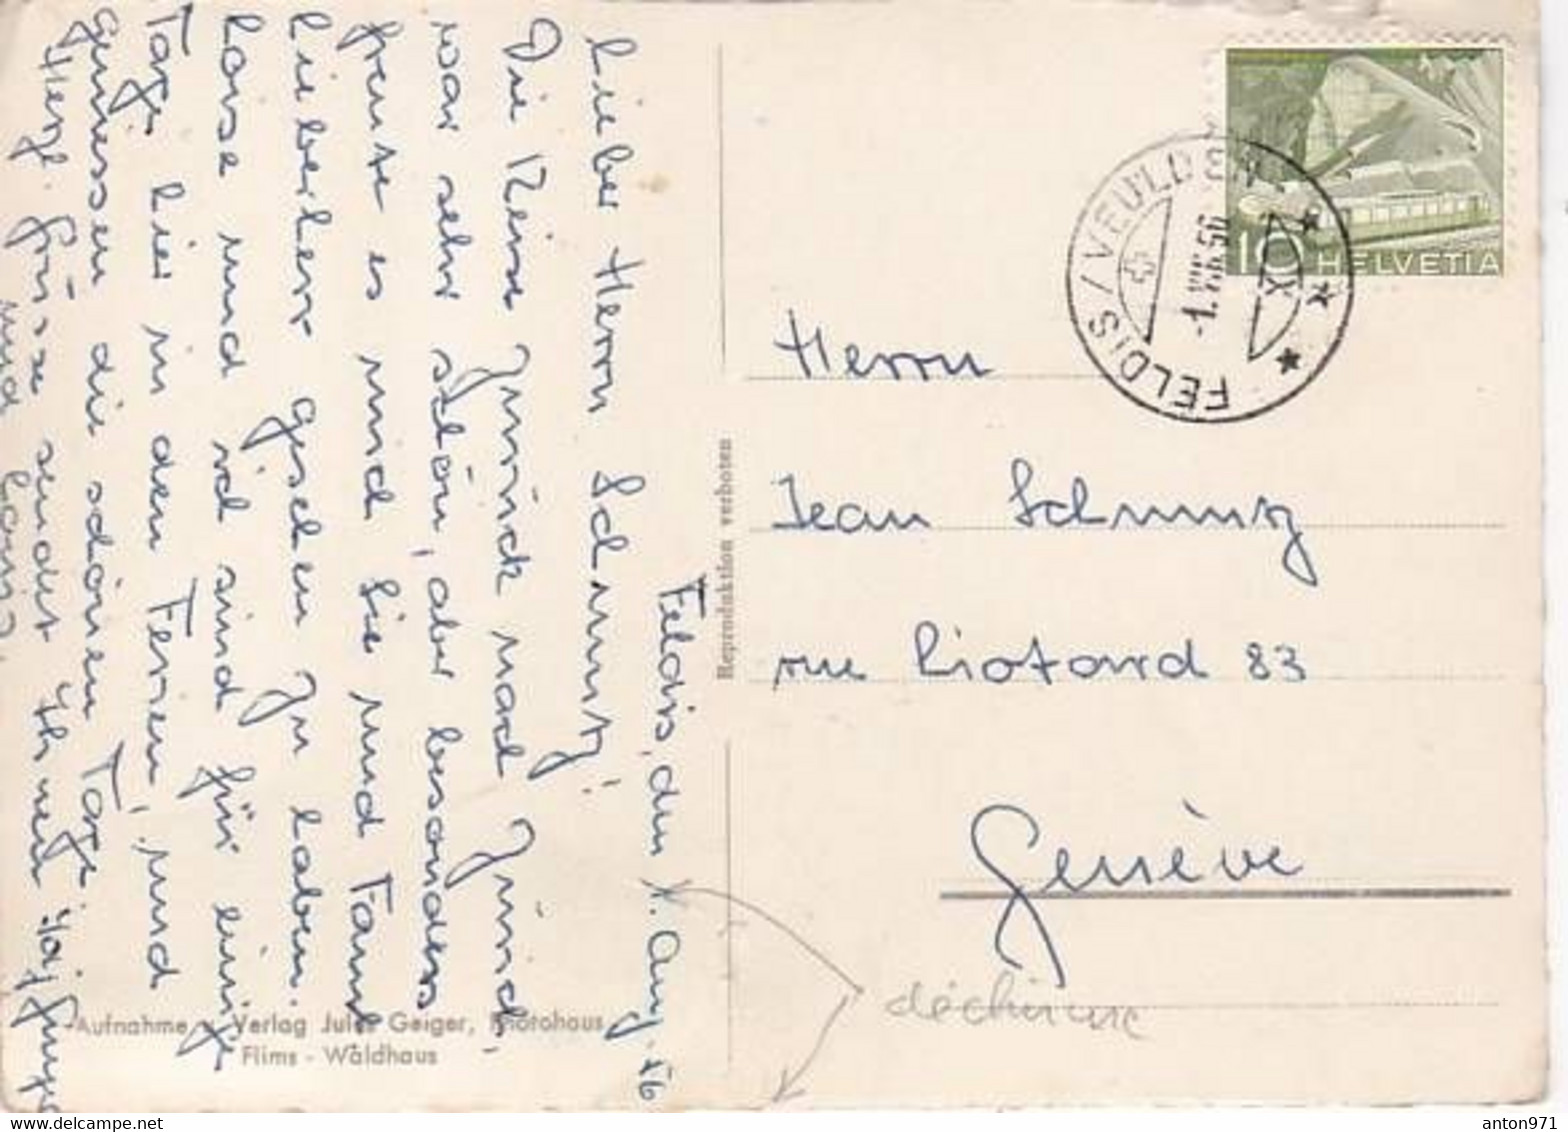 Feldis, den 1. Aug. 56
Lieber Herr Schmutz!
Die Reise zurück nach Zürich,
war sehr schön, aber besonders
freute es mich Sie und Tante
lieber gesehen zu haben.
und sind für einige
Tage hier in den Ferien, und
geniessen die schönen Tage.
Herzl. Grüsse sendet Ihnen
und
Aufnahme u. Verlag Jules Geiger, Photohaus
Flims - Waldhaus
Reproduktion verboten
HELVETIA
10
FELDIS / VEULDEN
-1.VIII.56
Herrn
Jean Schmutz
rue Liotard 83
Genève
déchirure
delcampe.net
anton971